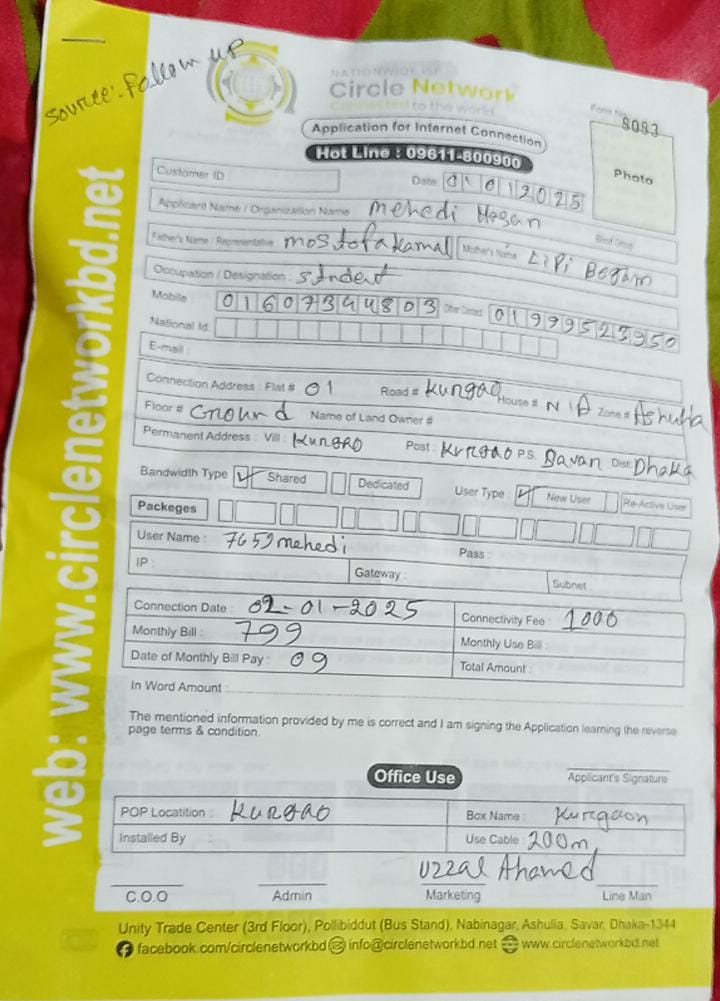 Source: Follow up
NATIONWIDE ISP
Circle Network
Connected to the world
Form No. 8093
Application for Internet Connection
Hot Line : 09611-800900
Photo
Customer ID
Date 01 01 2025
Applicant Name / Organization Name mehedi Hasan
Blood Group
Father's Name / Representative mostofa kamal Mother's Name Lipi Begam
Occupation / Designation : student
Mobile 01607344803 Other Contact 01999523950
National Id.
E-mail :
Connection Address : Flat # 01 Road # Kurgao House # N/A Zone # Ashulia
Floor # Ground Name of Land Owner #
Permanent Address : Vill : Kurgao Post : Kurgao P.S. Savar Dist: Dhaka
Bandwidth Type ✓ Shared Dedicated User Type : ✓ New User Re-Active User
Packeges
User Name : 7659mehedi Pass :
IP : Gateway : Subnet :
Connection Date : 02-01-2025 Connectivity Fee : 1000
Monthly Bill : 799 Monthly Use Bill :
Date of Monthly Bill Pay : 09 Total Amount :
In Word Amount :
The mentioned information provided by me is correct and I am signing the Application learning the reverse
page terms & condition.
Office Use
Applicant's Signature
POP Locatition : Kurgao Box Name : Kurgaon
Installed By : Use Cable : 200m
Uzzal Ahamed
C.O.O Admin Marketing Line Man
Unity Trade Center (3rd Floor), Pollibiddut (Bus Stand), Nabinagar, Ashulia, Savar, Dhaka-1344
facebook.com/circlenetworkbd info@circlenetworkbd.net www.circlenetworkbd.net
web: www.circlenetworkbd.net